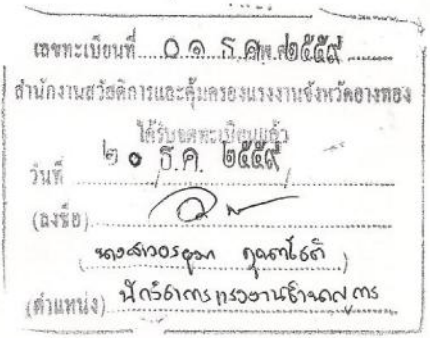 เลขทะเบียนที่ ๐๑ ธ.ค. ๒๕๕๙
สำนักงานสวัสดิการและคุ้มครองแรงงานจังหวัดอ่างทอง
ได้รับจดทะเบียนแล้ว
วันที่ ๒๐ ธ.ค. ๒๕๕๙
(ลงชื่อ)
(นางสาวอรอุมา คุณาโชติ)
(ตำแหน่ง) นักวิชาการแรงงานชำนาญการ